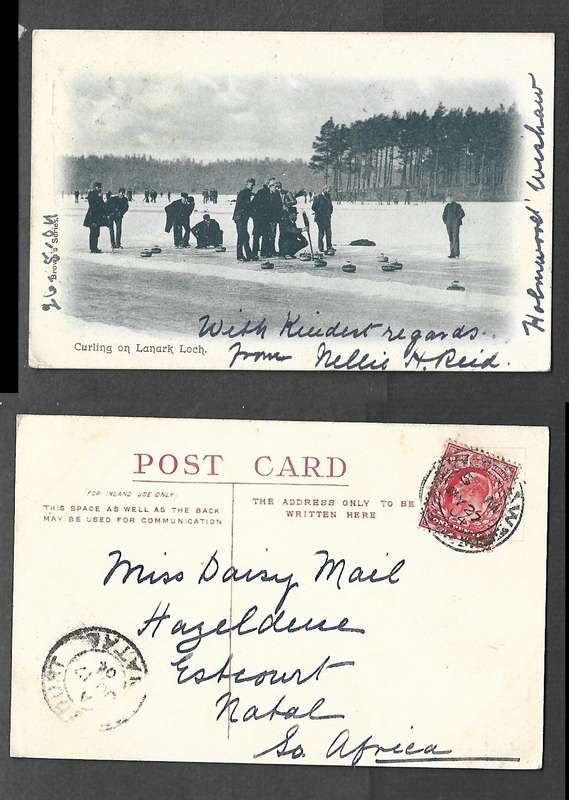 26.5.04
Brown's Series.
Holmwood' Wishaw
With Kindest regards..
Curling on Lanark Loch.
from Nellie H. Reid.
POST CARD
(FOR INLAND USE ONLY)
THIS SPACE AS WELL AS THE BACK
MAY BE USED FOR COMMUNICATION
THE ADDRESS ONLY TO BE
WRITTEN HERE
Miss Daisy Mail
Hazeldene
Estcourt
Natal
So. Africa
NATAL
04